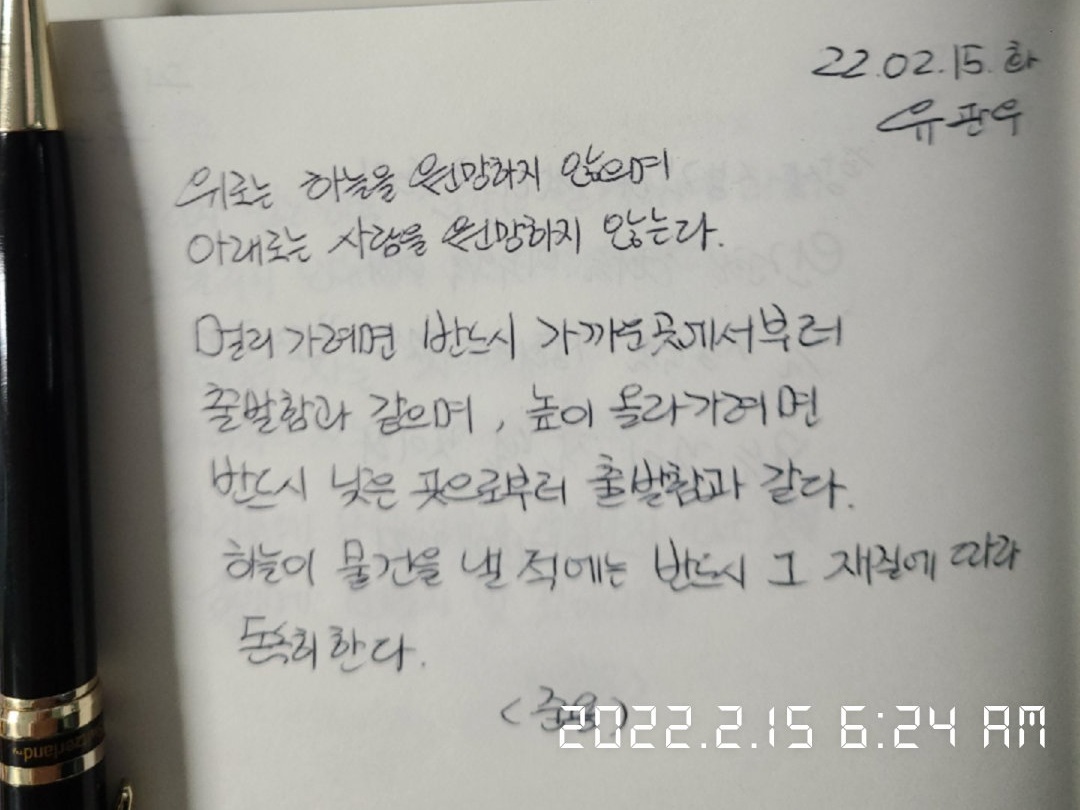 22.02.15.화
유판우
위로는 하늘을 원망하지 않으며
아래로는 사람을 원망하지 않는다.
멀리 가려면 반드시 가까운곳에서부터
출발함과 같으며, 높이 올라가려면
반드시 낮은 곳으로부터 출발함과 같다.
하늘이 물건을 낼 적에는 반드시 그 재질에 따라
돈독히 한다.
(중용)
2022.2.15 6:24 AM